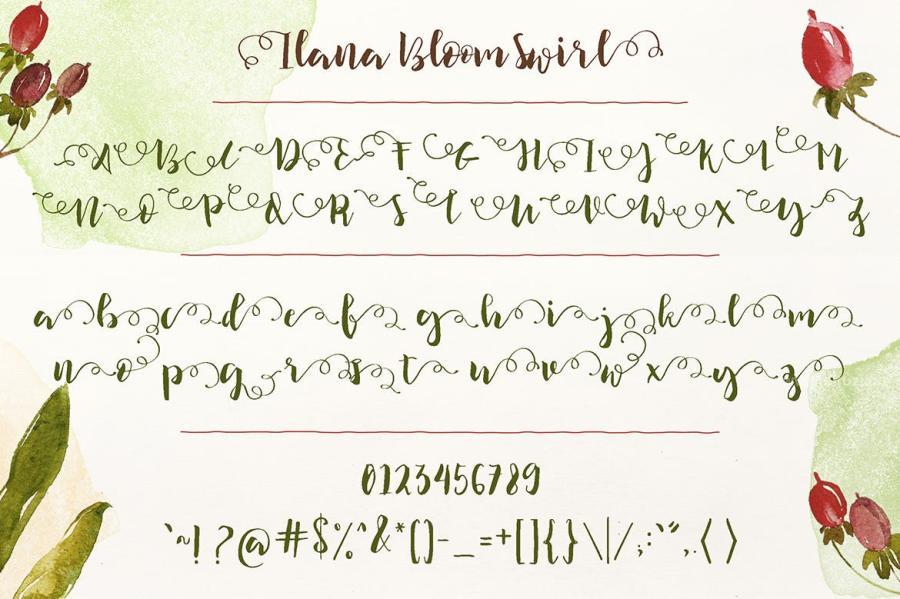 Ilana Bloom Swirl
A B C D E F G H I J K L M
N O P Q R S T U V W X Y Z
a b c d e f g h i j k l m
n o p q r s t u v w x y z
0123456789
`~!?@#$%^&*()-_=+[]{}\|/;:'",.<>